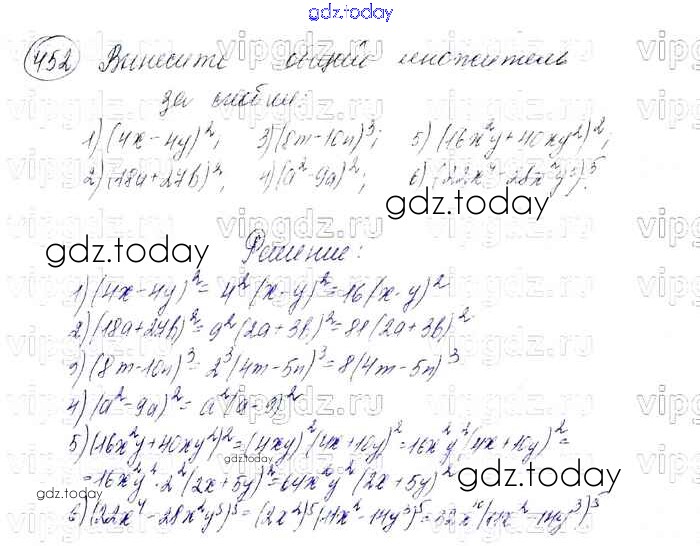 gdz.today
452 Вынесите общий множитель
за скобки:
1) (4x-4y)²; 3) (8m-10n)³; 5) (16x²y+40xy²)²;
2) (18a+27b)²; 4) (a²-9a)²; 6) (22x⁴-28x²y³)⁵.
gdz.today
gdz.today
Решение:
1) (4x-4y)² = 4²(x-y)² = 16(x-y)²
2) (18a+27b)² = 9²(2a+3b)² = 81(2a+3b)²
3) (8m-10n)³ = 2³(4m-5n)³ = 8(4m-5n)³
4) (a²-9a)² = a²(a-9)²
5) (16x²y+40xy²)² = (4xy)²(4x+10y)² = 16x²y²(4x+10y)² =
gdz.today
= 16x²y²·2²(2x+5y)² = 64x²y²(2x+5y)²
gdz.today
gdz.today
6) (22x⁴-28x²y³)⁵ = (2x²)⁵(11x²-14y³)⁵ = 32x¹⁰(11x²-14y³)⁵